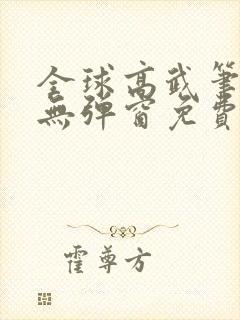 全球高武筆
無彈窗免費
霍尊方